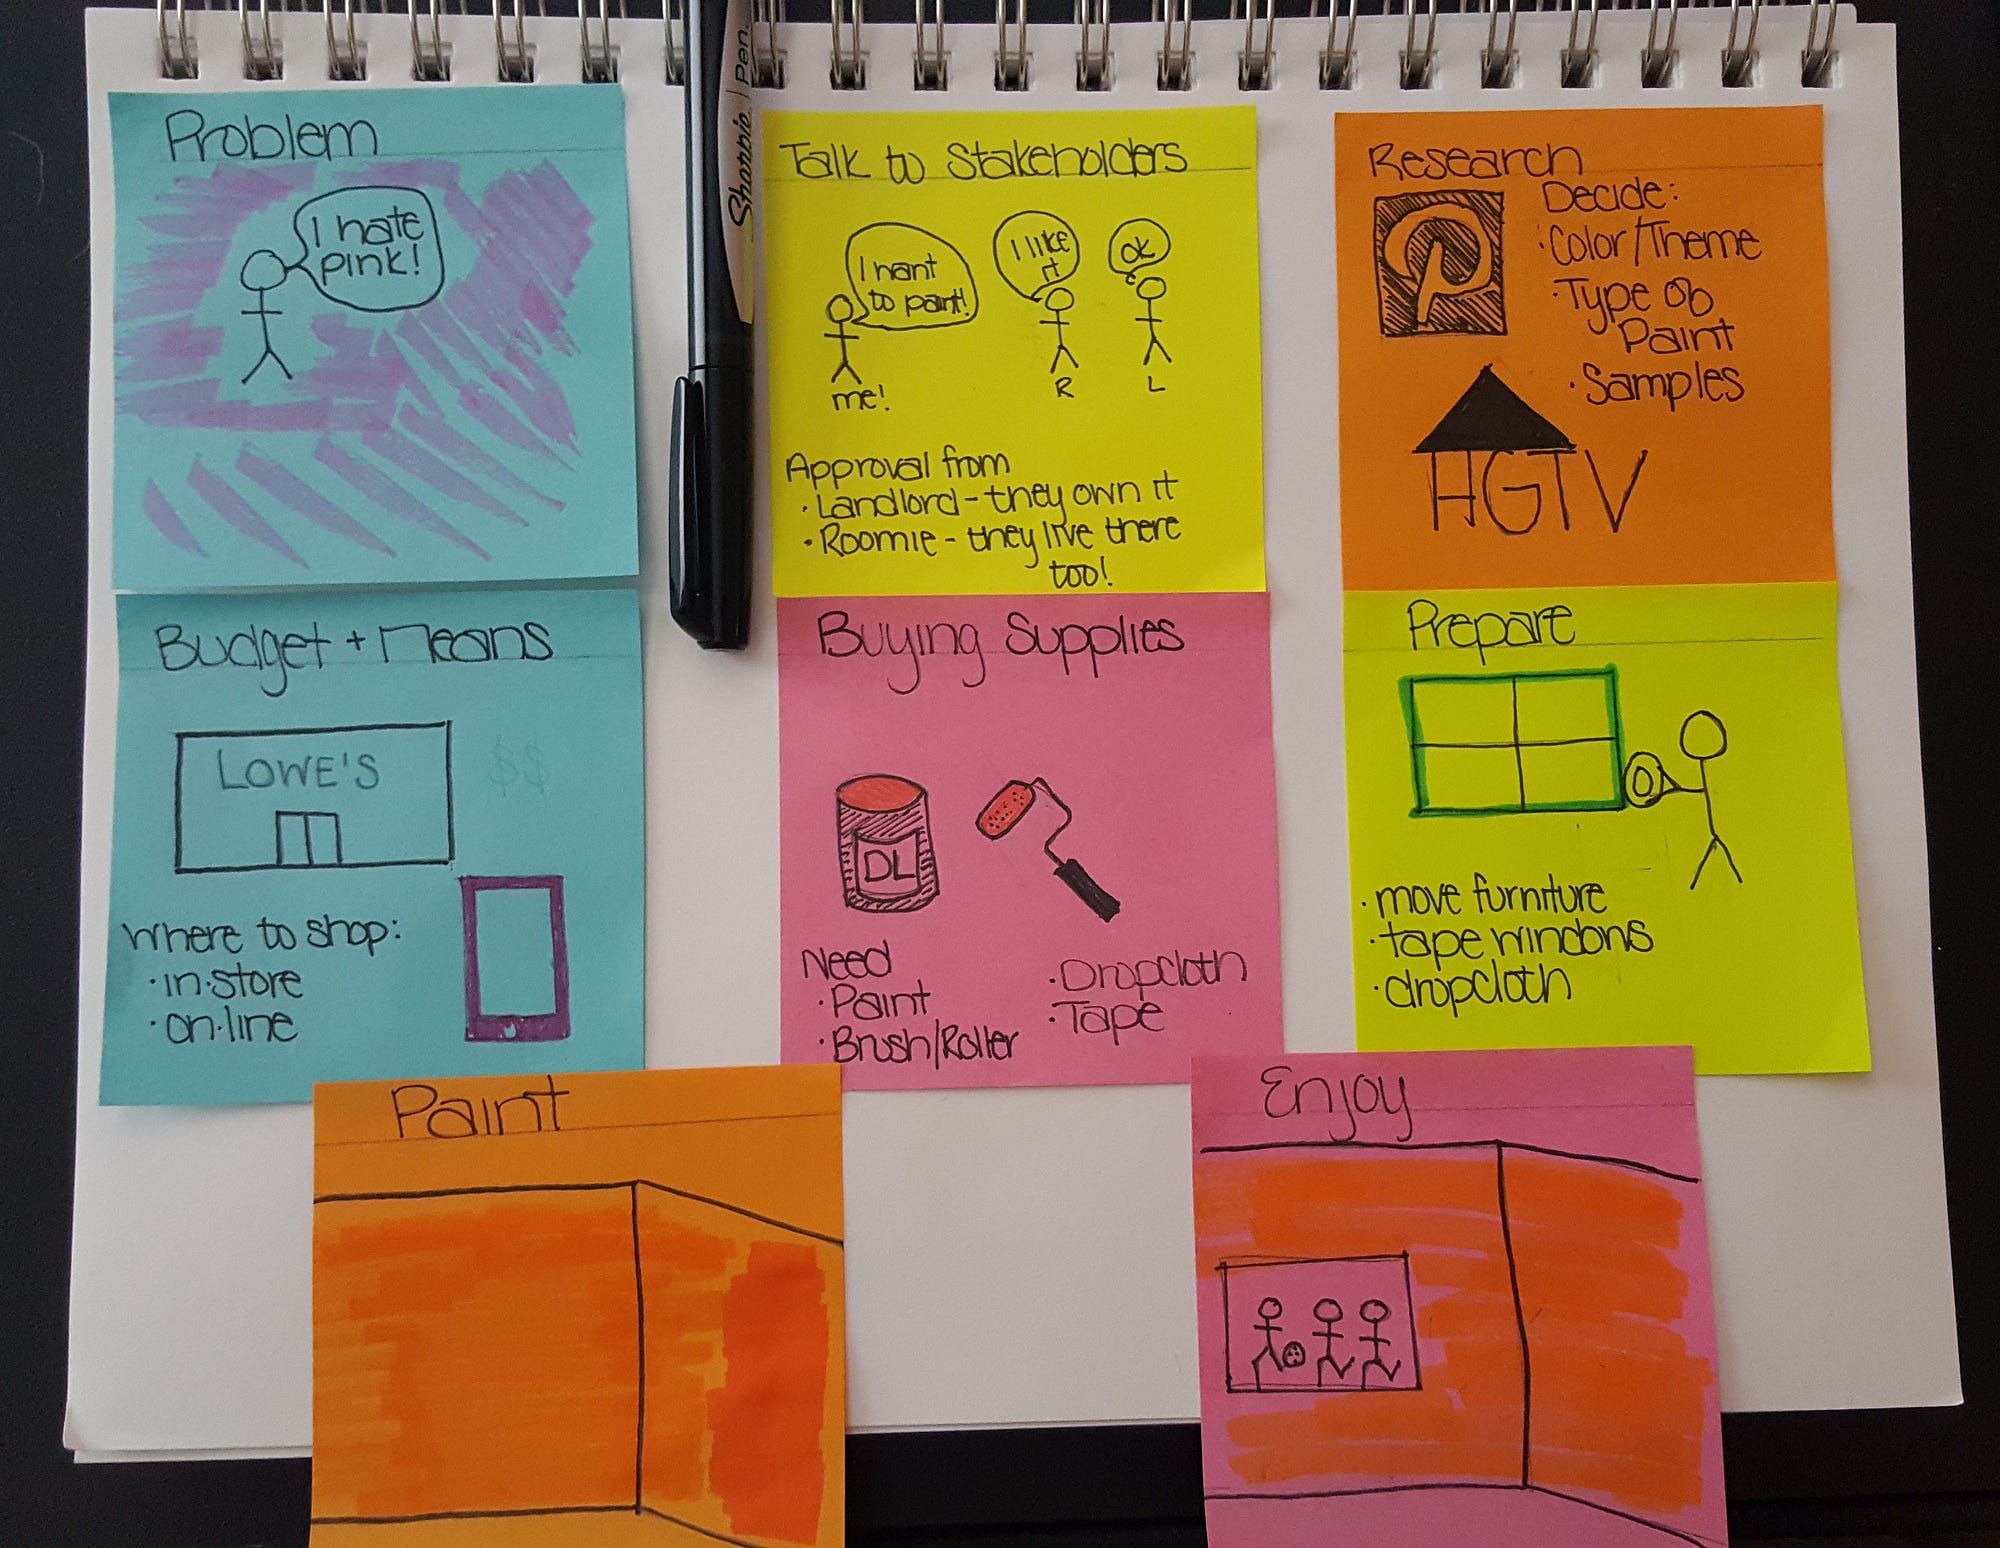 Problem
I hate
pink!
Sharpie. | Pen.
Talk to Stakeholders
I want
to paint!
I like
it
ok
me!
R
L
Approval from
· Landlord - they own it
· Roomie - they live there
too!
Research
Decide:
· Color/Theme
· Type of
Paint
· Samples
HGTV
Budget + Means
LOWE'S
$$
Where to shop:
· in·store
· on·line
Buying Supplies
DL
Need
· Paint
· Brush/Roller
· Dropcloth
· Tape
Prepare
· move furniture
· tape windows
· dropcloth
Paint
Enjoy